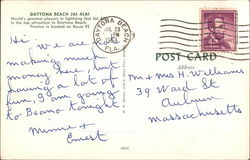 DAYTONA BEACH JAI ALAI
World's greatest players in lightning fast Jai Alai
is the top attraction in Daytona Beach.
Fronton is located on Route 92.
DAYTONA BEACH
FLA.
POST CARD
Address
Hi We are
making much
money here, but
having a lot of
fun. I am going
to Beano tonight
Minnie +
Ernest
Mr + Mrs H. Williams
39 Ward St
Auburn
Massachusetts